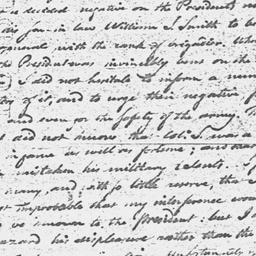 a decided negative on the President's no
son-in law William S Smith to be
general, with the rank of brigadier. Whe
the President was invincibly bent on the
I did not hesitate to inform a num
of it, and to urge their negative f
and even for the safety of the army. T
did not know the Col: I was a
in fame as well as fortune; and was
mistaken his military talents. I
many, and with so little reserve, that
improbable that my interference wou
known to the President: but I
hazard his displeasure rather than the
Unfortunately